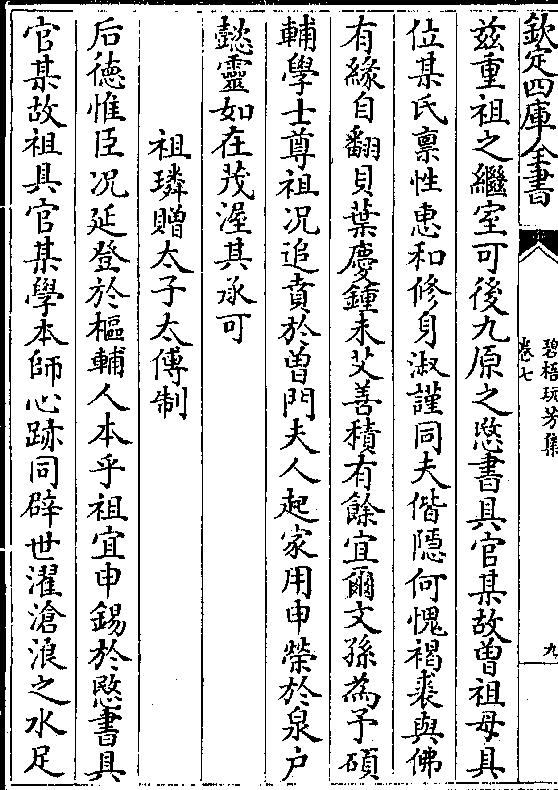 欽定四庫全書
碧梧玩芳集
卷七
九
茲重祖之繼室可後九原之愍書具官某故曾祖母具
位某氏禀性惠和修身淑謹同夫偕隱何愧褐裘與佛
有緣自翻貝葉慶鍾未艾善積有餘宜爾文孫為予碩
輔學士尊祖况追賁於曽門夫人起家用申榮於泉户
懿靈如在茂渥其承可
祖璘贈太子太傅制
后德惟臣况延登於樞輔人本乎祖宜申錫於愍書具
官某故祖具官某學本師心跡同辟世濯滄浪之水足